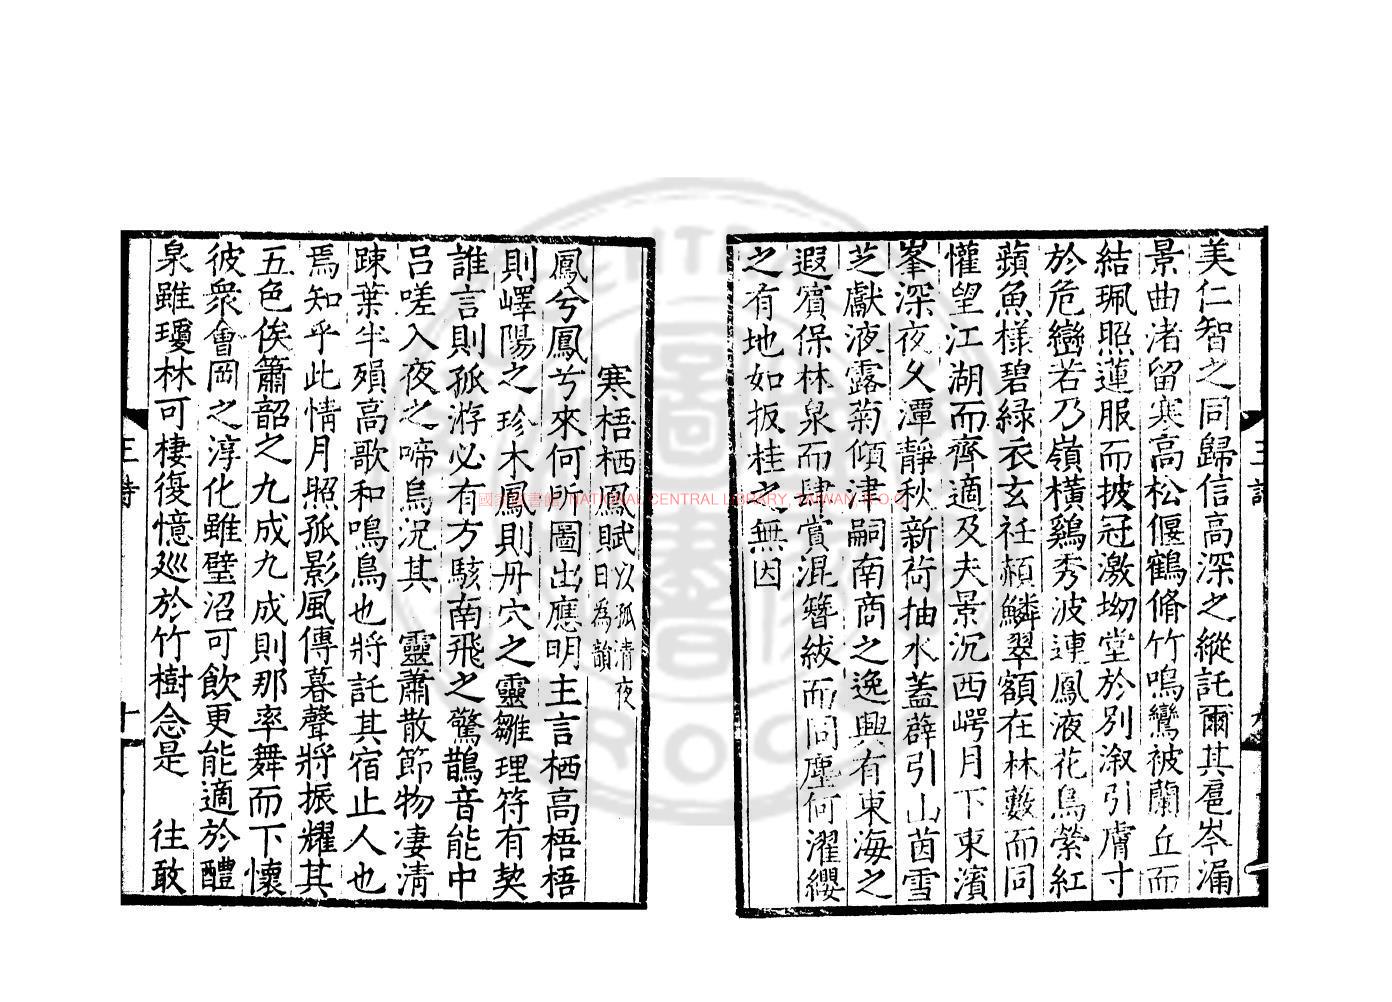 美仁智之同歸信高深之縱託爾其扈岑漏
景曲渚留寒高松偃鶴脩竹鳴鸞被蘭丘而
結珮照蓮服而披冠激坳堂於別溆引膚寸
於危巒若乃嶺橫鷄秀波連鳳液花鳥縈紅
蘋魚樣碧綠衣玄衽頳鱗翠額在林藪而同
懽望江湖而齊適及夫景沉西崿月下東濱
峯深夜久潭靜秋新荷抽水蓋薜引山茵雪
芝獻液露菊傾津嗣南商之逸興有東海之
遐賓保林泉而肆賞混簪紱而同塵何濯纓
之有地如扳桂之無因
寒梧栖鳳賦 以孤清夜
日為韻
鳳兮鳳兮來何所圖出應明主言栖高梧梧
則嶧陽之珍木鳳則丹穴之靈雛理符有契
誰言則孤游必有方駭南飛之驚鵲音能中
呂嗟入夜之啼烏況其 靈蕭散節物凄清
踈葉半殞高歌和鳴鳥也將託其宿止人也
焉知乎此情月照孤影風傳暮聲將振耀其
五色俟簫韶之九成九成則那率舞而下懷
彼衆會岡之淳化雖璧沼可飲更能適於醴
泉雖瓊林可棲復憶巡於竹樹念是 往敢
國家圖書館, NATIONAL CENTRAL LIBRARY, TAIWAN, R.O.C